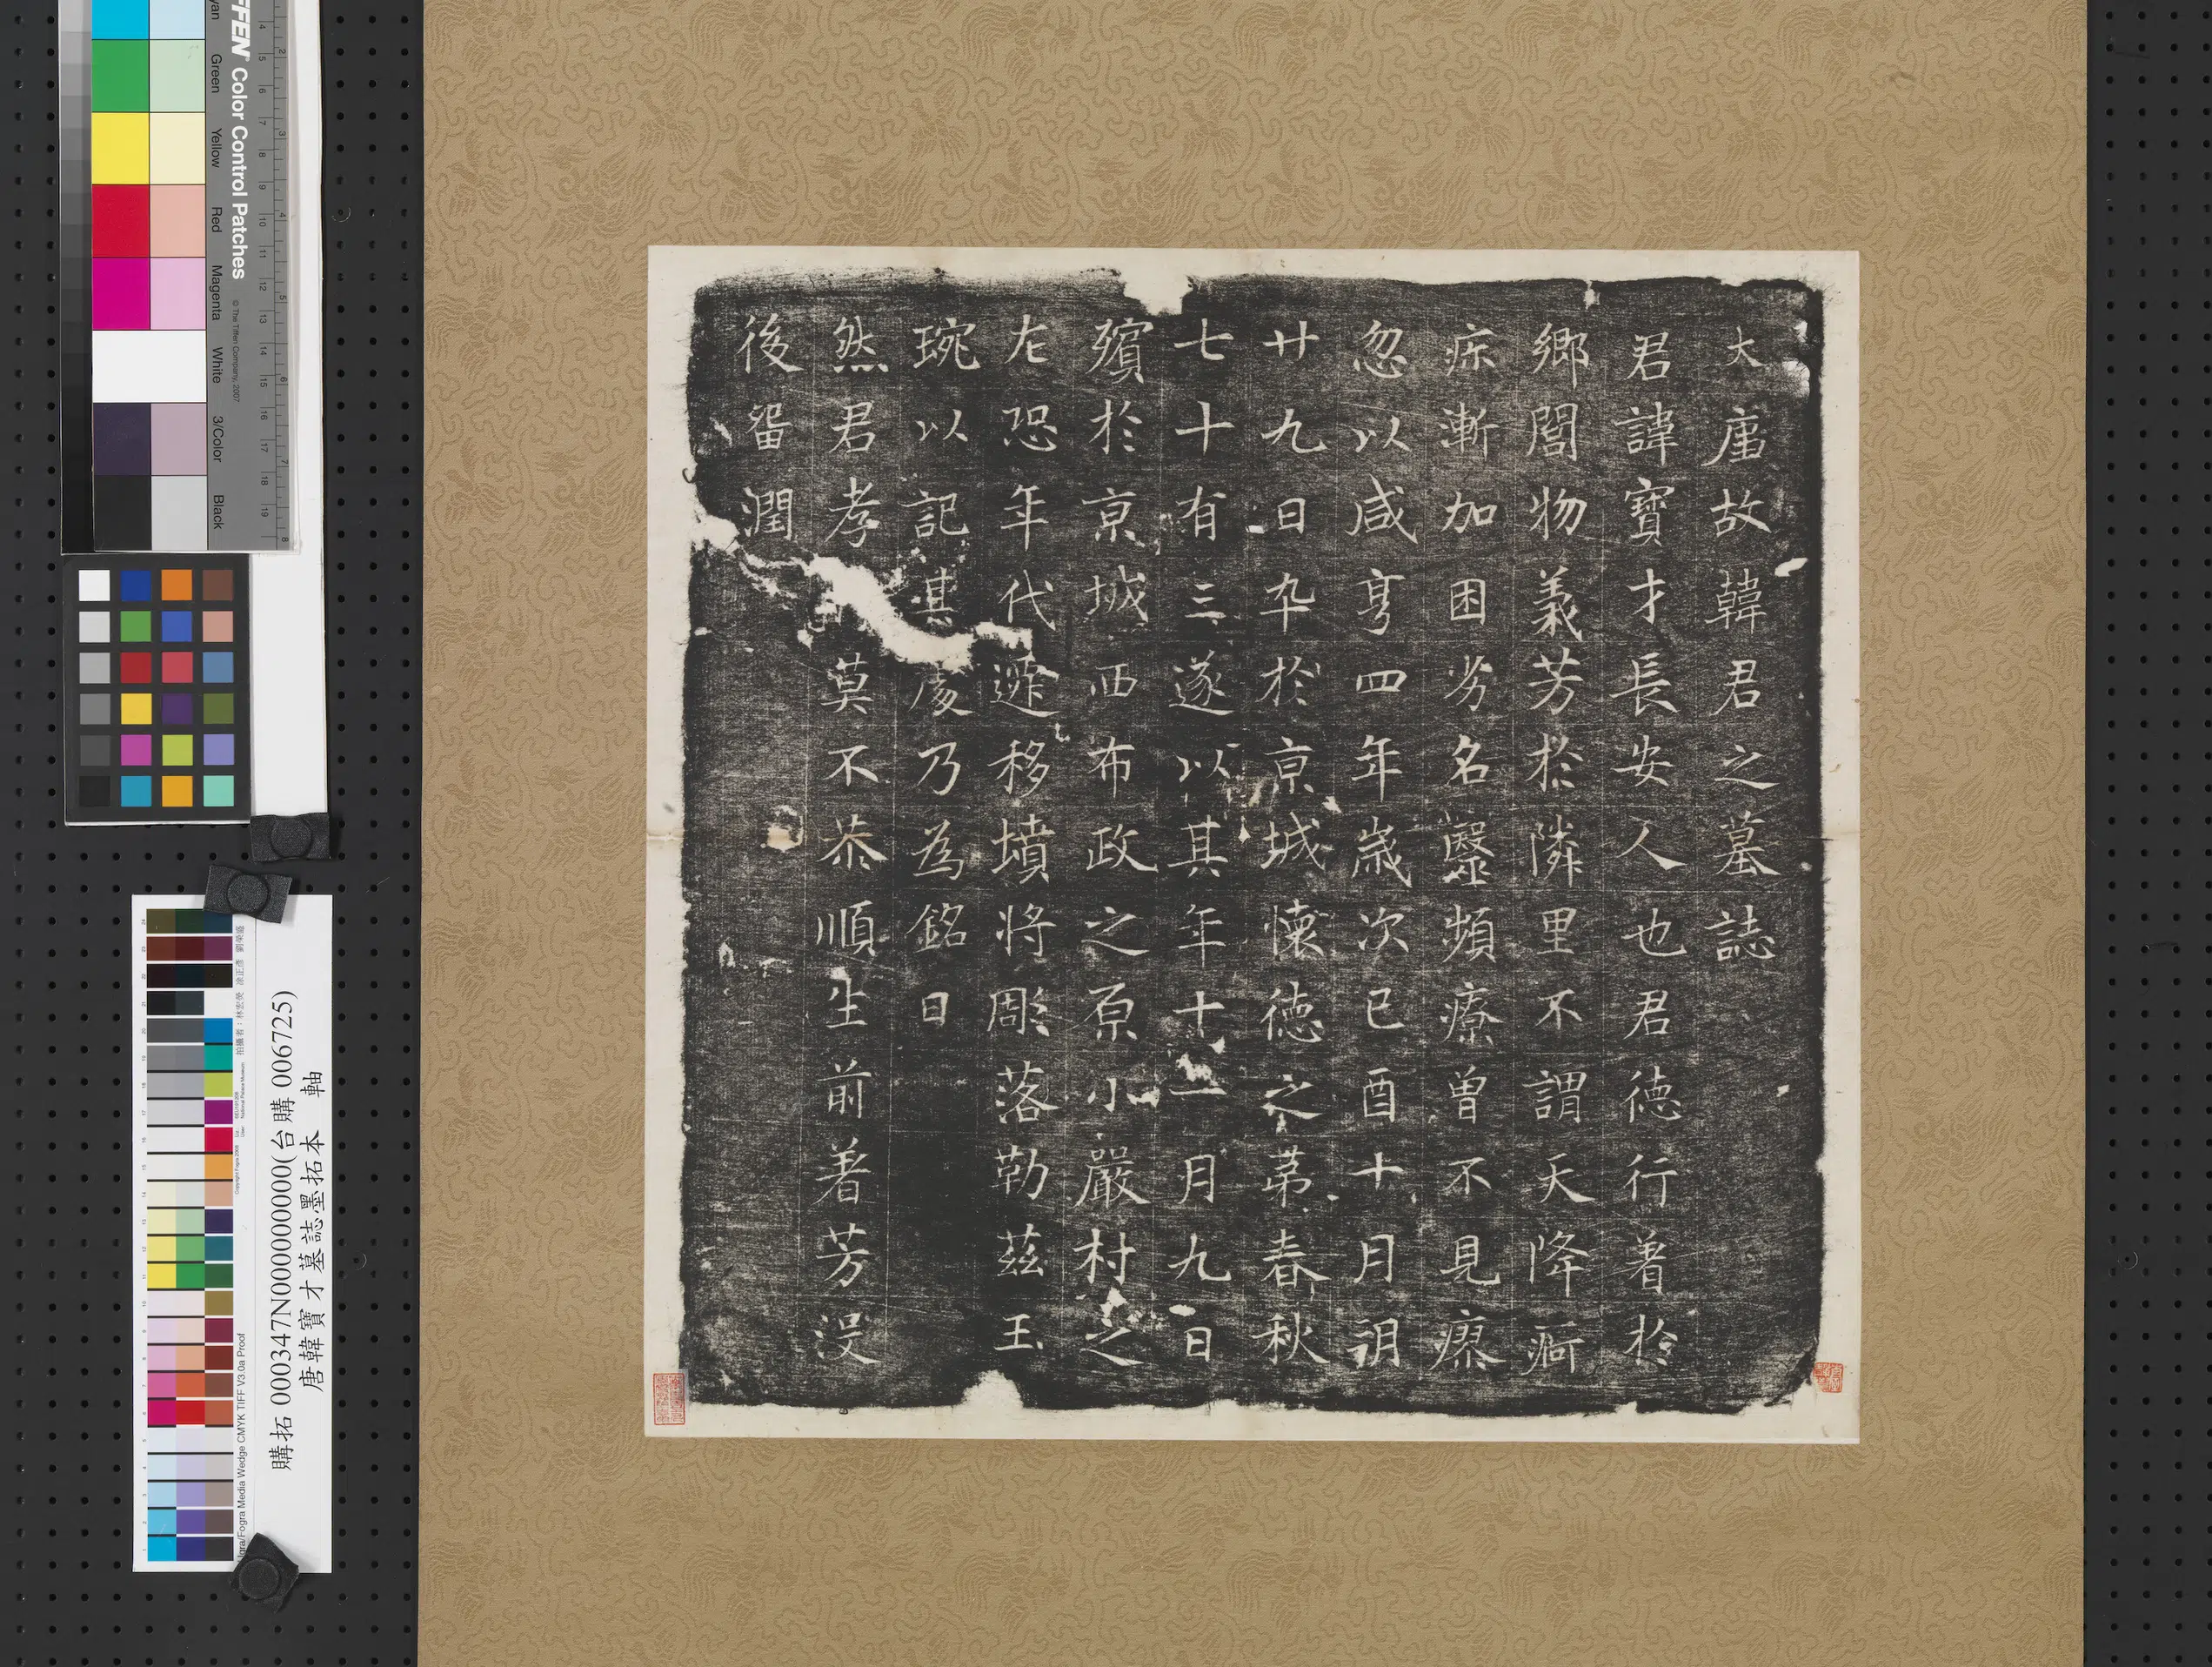 大唐故韓君之墓誌
君諱寶才長安人也君徳行著於
鄉閭物義芳於隣里不謂天降痾
疹漸加困劣名毉頻療曾不見瘳
忽以咸亨四年嵗次已酉十月朔
廿九日卒於亰城懷徳之苐春秋
七十有三遂以其年十一月九日
殯於亰城西布政之原小嚴村之
左恐年代遞移墳将彫落勒茲玉
琬以記其處乃為銘曰
然君孝莫不恭順生前著芳没
後留潤
FFEN Color Control Patches
© The Tiffen Company, 2007
yan Green Yellow Red Magenta White 3/Color Black
購拓 000347N000000000(台購 006725)
唐韓寶才墓誌墨拓本 軸
Ugra/Fogra Media Wedge CMYK TIFF V3.0a Proof